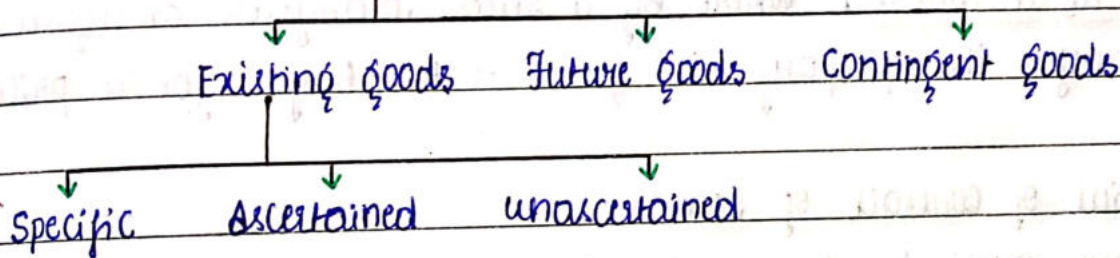 Existing goods Future goods Contingent goods
Specific Ascertained unascertained